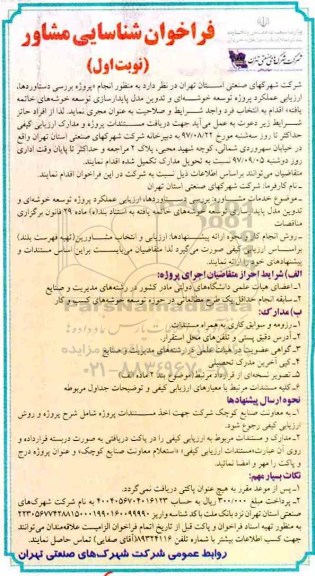 فراخوان شناسایی مشاور
(نوبت اول)
شرکت شهرکهای صنعتی تهران
شرکت شهرکهای صنعتی استان تهران در نظر دارد به منظور انجام «پروژه بررسی دستاوردها،
ارزیابی عملکرد پروژه توسعه خوشه‌ای و تدوین مدل پایدارسازی توسعه خوشه‌های خاتمه
یافته» اقدام به انتخاب فرد واجد شرایط و صلاحیت به عنوان مجری نماید. لذا از افراد حائز
شرایط زیر دعوت به عمل می‌آید جهت دریافت مستندات پروژه و مدارک ارزیابی کیفی
حداکثر تا روز سه‌شنبه مورخ ۹۷/۰۸/۲۲ به دبیرخانه شرکت شهرکهای صنعتی تهران واقع
در خیابان سهروردی شمالی، کوچه شهید محبی، پلاک ۲ مراجعه و حداکثر تا پایان وقت اداری
روز دوشنبه ۹۷/۰۹/۰۵ نسبت به تحویل مدارک تکمیل شده اقدام نمایند.
متقاضیان می‌توانند براساس اطلاعات ذیل نسبت به شرکت در این فراخوان اقدام نمایند.
ـ نام کارفرما: شرکت شهرکهای صنعتی استان تهران
ـ موضوع خدمات مشاوره: بررسی دستاوردها، ارزیابی عملکرد پروژه توسعه خوشه‌ای و
تدوین مدل پایدارسازی توسعه خوشه‌های خاتمه یافته به استناد بند(ه) ماده ۲۹ قانون برگزاری
مناقصات
ـ روش انجام کار و نحوه ارائه پیشنهادها: ارزیابی و انتخاب مشاورین(تهیه فهرست بلند)
براساس ارزیابی کیفی صورت می‌گیرد لذا متقاضیان می‌بایست براین اساس مستندات و
پیشنهادهای خود را ارائه نمایند.
الف) شرایط احراز متقاضیان اجرای پروژه:
۱ـ اعضای هیات علمی دانشگاه‌های دولتی مادر کشور در رشته‌های مدیریت و صنایع
۲ـ سابقه انجام حداقل یک طرح مطالعاتی در حوزه توسعه خوشه‌های کسب و کار
ب) مدارک:
۱ـ رزومه و سوابق کاری به همراه مستندات
۲ـ آدرس دقیق پستی و تلفن‌های محل استقرار
۳ـ گواهی عضویت در هیات علمی در رشته‌های مدیریت و صنایع
۴ـ کپی آخرین مدرک تحصیلی
۵ـ تصویر نسخه‌ای از قرارداد مرتبط (موضوع بند ۲ ماده الف)
۶ـ کلیه مستندات مرتبط با معیارهای ارزیابی کیفی و توضیحات جداول مربوطه
نحوه ارسال پیشنهادها
۱ـ به معاونت صنایع کوچک شرکت جهت اخذ مستندات پروژه شامل شرح پروژه و روش
ارزیابی کیفی رجوع شود.
۲ـ مدارک و مستندات مربوط به ارزیابی کیفی را در پاکت دریافتی به صورت دربسته قرارداده و
روی آن عبارت«مستندات ارزیابی کیفی» «استعلام معاونت صنایع کوچک» و عنوان پروژه درج
و پاکت را مهر و امضا نمائید.
نکات بسیار مهم:
۱ـ پس از موعد مقرر به هیچ عنوان پاکتی دریافت نمی‌گردد.
۲ـ پرداخت مبلغ ۳۰۰/۰۰۰ ریال به حساب ۴۰۰۴۰۵۶۷۰۴۰۱۶۱۲۳ به نام شرکت شهرک‌های
صنعتی استان تهران نزد بانک ملت با کد شناسه واریز
به منظور تهیه اسناد فراخوان و پاکت قبل از تاریخ اتمام فراخوان الزامیست علاقه‌مندان می‌توانند
جهت کسب اطلاعات بیشتر با شماره تلفن ۸۹۳۲۴۱۱۶(آقای صفایی) تماس حاصل نمایند.
روابط عمومی شرکت شهرک‌های صنعتی تهران
ParsNamadData
۰۲۱-۸۸۳۴۹۶۷۰